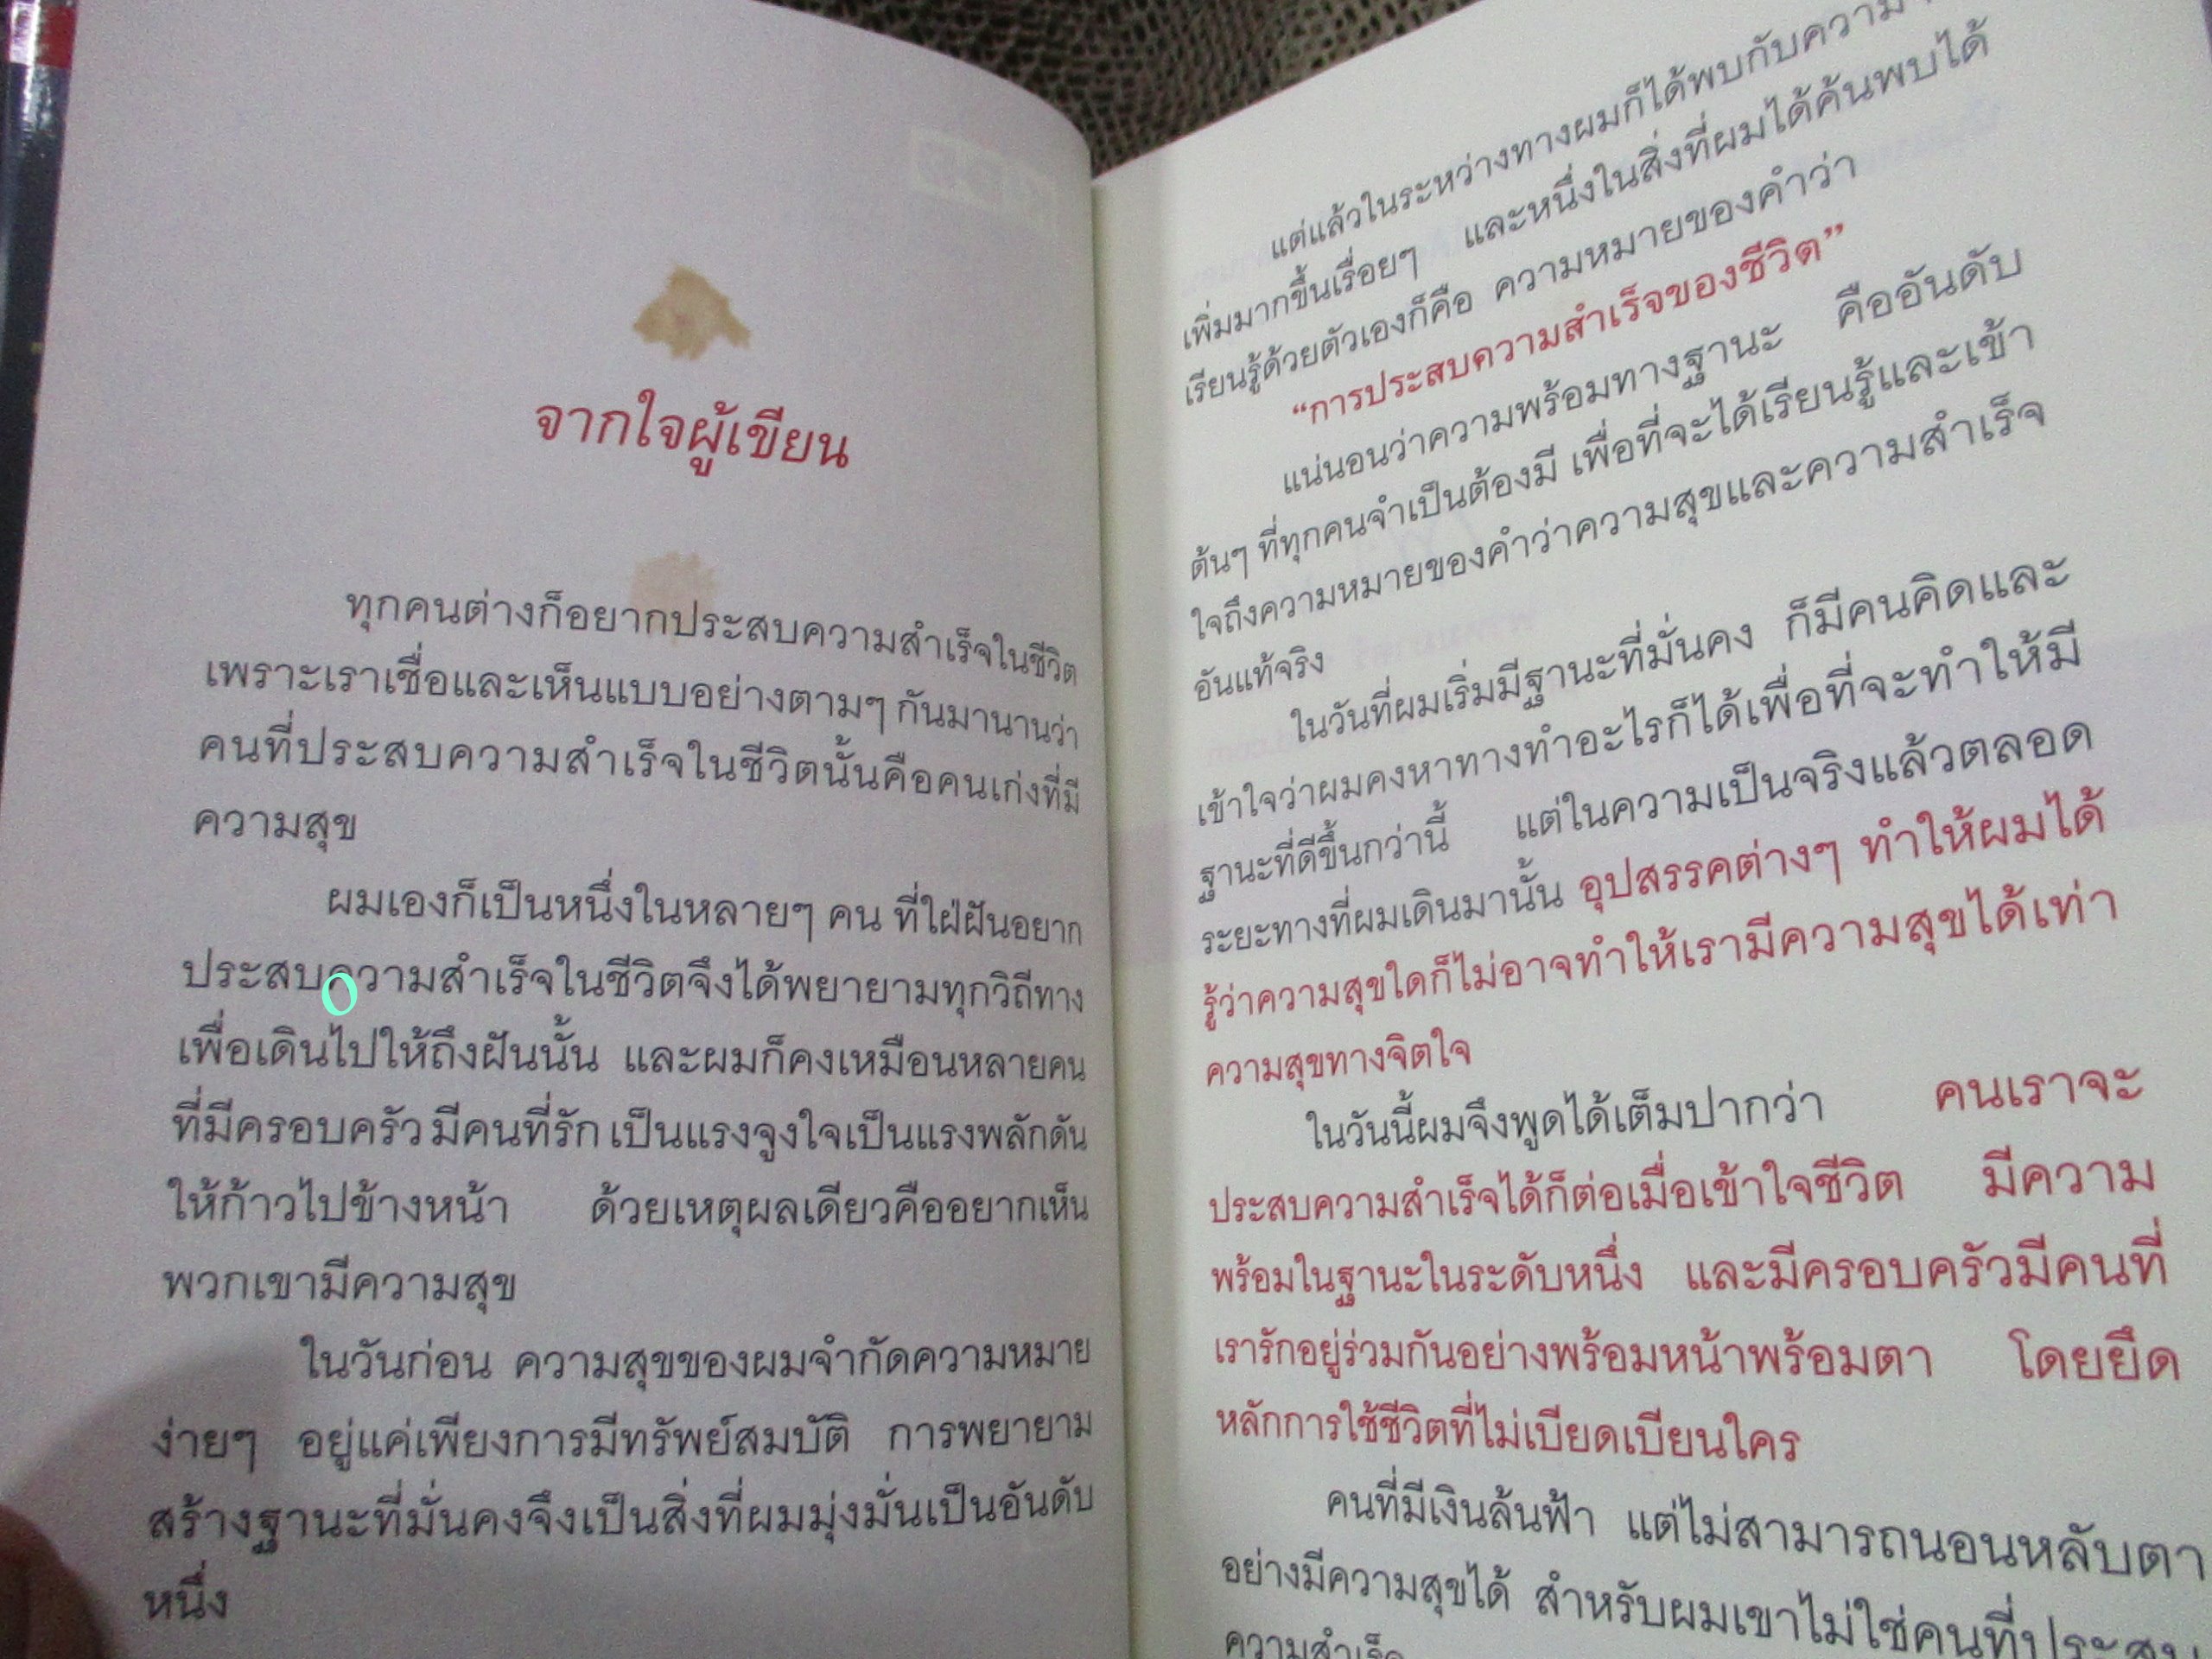 จากใจผู้เขียน
ทุกคนต่างก็อยากประสบความสำเร็จในชีวิต
เพราะเราเชื่อและเห็นแบบอย่างตามๆ กันมานานว่า
คนที่ประสบความสำเร็จในชีวิตนั้นคือคนเก่งที่มี
ความสุข
ผมเองก็เป็นหนึ่งในหลายๆ คน ที่ใฝ่ฝันอยาก
ประสบความสำเร็จในชีวิตจึงได้พยายามทุกวิถีทาง
เพื่อเดินไปให้ถึงฝันนั้น และผมก็คงเหมือนหลายคน
ที่มีครอบครัว มีคนที่รัก เป็นแรงจูงใจเป็นแรงพลักดัน
ให้ก้าวไปข้างหน้า ด้วยเหตุผลเดียวคืออยากเห็น
พวกเขามีความสุข
ในวันก่อน ความสุขของผมจำกัดความหมาย
ง่ายๆ อยู่แค่เพียงการมีทรัพย์สมบัติ การพยายาม
สร้างฐานะที่มั่นคงจึงเป็นสิ่งที่ผมมุ่งมั่นเป็นอันดับ
หนึ่ง
แต่แล้วในระหว่างทางผมก็ได้พบกับความ
เพิ่มมากขึ้นเรื่อยๆ และหนึ่งในสิ่งที่ผมได้ค้นพบได้
เรียนรู้ด้วยตัวเองก็คือ ความหมายของคำว่า
“การประสบความสำเร็จของชีวิต”
แน่นอนว่าความพร้อมทางฐานะ คืออันดับ
ต้นๆ ที่ทุกคนจำเป็นต้องมี เพื่อที่จะได้เรียนรู้และเข้า
ใจถึงความหมายของคำว่าความสุขและความสำเร็จ
อันแท้จริง
ในวันที่ผมเริ่มมีฐานะที่มั่นคง ก็มีคนคิดและ
เข้าใจว่าผมคงหาทางทำอะไรก็ได้เพื่อที่จะทำให้มี
ฐานะที่ดีขึ้นกว่านี้ แต่ในความเป็นจริงแล้วตลอด
ระยะทางที่ผมเดินมานั้น อุปสรรคต่างๆ ทำให้ผมได้
รู้ว่าความสุขใดก็ไม่อาจทำให้เรามีความสุขได้เท่า
ความสุขทางจิตใจ
ในวันนี้ผมจึงพูดได้เต็มปากว่า คนเราจะ
ประสบความสำเร็จได้ก็ต่อเมื่อเข้าใจชีวิต มีความ
พร้อมในฐานะในระดับหนึ่ง และมีครอบครัวมีคนที่
เรารักอยู่ร่วมกันอย่างพร้อมหน้าพร้อมตา โดยยึด
หลักการใช้ชีวิตที่ไม่เบียดเบียนใคร
คนที่มีเงินล้นฟ้า แต่ไม่สามารถนอนหลับตา
อย่างมีความสุขได้ สำหรับผมเขาไม่ใช่คนที่ประสบ
ความสำเร็จ